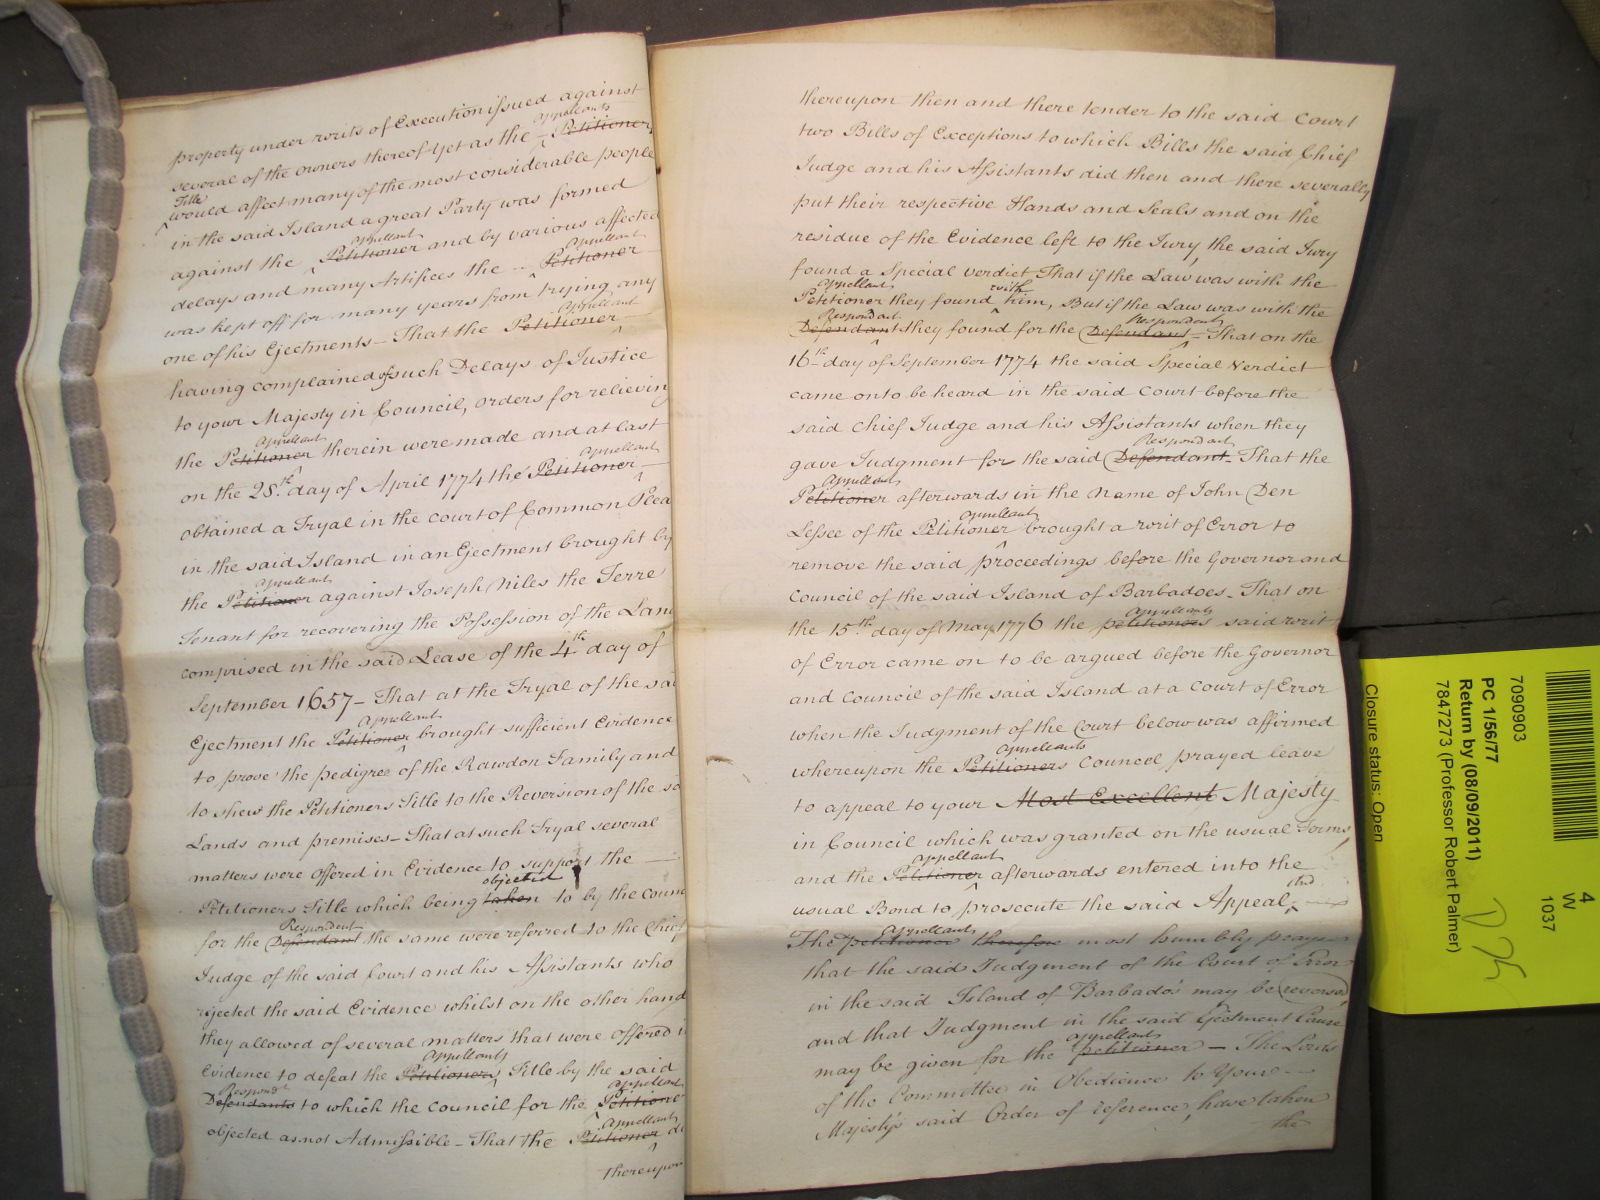 property under writs of Execution issued against
appellants
several of the owners thereof yet as the Petitioners
Title
would affect many of the most considerable people
in the said Island a great Party was formed
appellant
against the Petitioner and by various affected
appellant
delays and many Artifices the Petitioner
was kept off for many years from trying any
appellant
one of his Ejectments – That the Petitioner
having complained of such Delays of Justice
to your Majesty in Council, orders for relieving
appellant
the Petitioner therein were made and at last
appellant
on the 28th day of April 1774 the Petitioner
obtained a Tryal in the court of Common Plea
in the said Island in an Ejectment brought by
appellant
the Petitioner against Joseph Niles the Terre
Tenant for recovering the Possession of the Land
comprised in the said Lease of the 4th day of
September 1657 – That at the Tryal of the sai
appellant
Ejectment the Petitioner brought sufficient Evidence
to prove the pedigree of the Rawdon Family and
to shew the Petitioners Title to the Reversion of the sa
Lands and premises – That at such Tryal several
matters were offered in Evidence to support the
objected
Petitioners Title which being taken to by the counc
Respondent
for the Defendant the same were referred to the Chief
Judge of the said Court and his Assistants who
rejected the said Evidence whilst on the other hand
they allowed of several matters that were offered i
appellants
Evidence to defeat the Petitioners Title by the said
Respondt appellant
Defendants to which the council for the Petitioner
appellant
objected as not Admissible – That the Petitioner di
thereupon
thereupon then and there tender to the said Court
two Bills of Exceptions to which Bills the said Chief
Judge and his Assistants did then and there severally
put their respective Hands and Seals and on the
residue of the Evidence left to the Jury, the said Jury
found a Special verdict That if the Law was with the
appellant with
Petitioner they found him, But if the Law was with the
Respondent Respondent
Defendant they found for the Defendant – That on the
16th day of September 1774 the said Special Verdict
came on to be heard in the said Court before the
said Chief Judge and his Assistants when they
Respondent
gave Judgment for the said Defendant – That the
appellant
Petitioner afterwards in the name of John Den
appellant
Lessee of the Petitioner brought a writ of Error to
remove the said proceedings before the Governor and
Council of the said Island of Barbadoes – That on
appellants
the 15th day of May 1776 the petitioners said writ
of Error came on to be argued before the Governor
and Council of the said Island at a Court of Error
when the Judgment of the Court below was affirmed
appellants
whereupon the Petitioners Council prayed leave
to appeal to your Most Excellent Majesty
in Council which was granted on the usual Terms,
appellant
and the Petitioner afterwards entered into the
and
usual Bond to prosecute the said Appeal,
appellant
The petitioner therefore most humbly prayes
that the said Judgment of the Court of Error
in the said Island of Barbados may be reversed
and that Judgment in the said Ejectment Cause
appellant
may be given for the petitioner – The Lords
of the Committee in Obedience to Your
Majesty's said Order of reference, have taken
the
4
W
1037
7090903
PC 1/56/77
Return by (08/09/2011)
7847273 (Professor Robert Palmer)
Closure status: Open